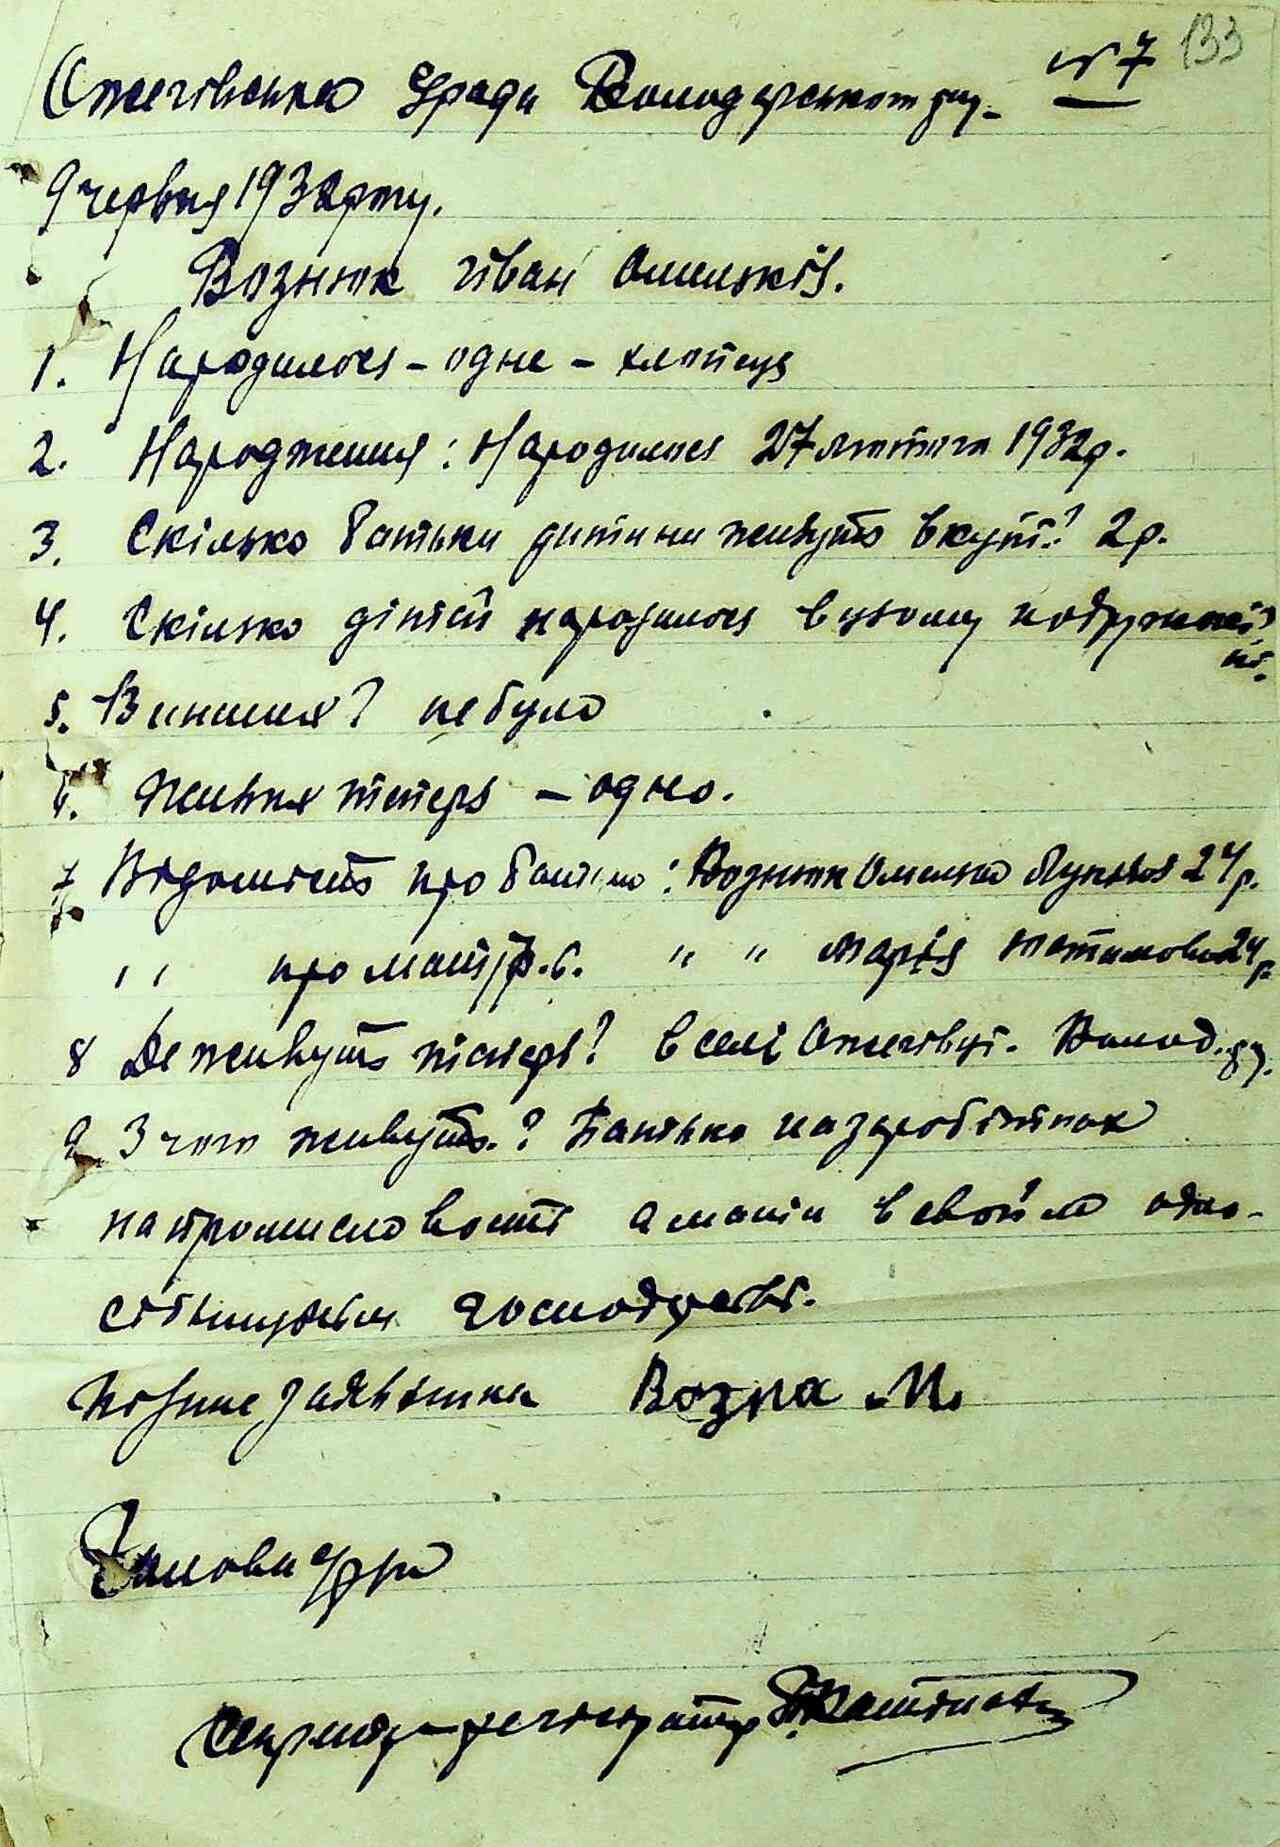 № 7 133
Ожегівська с/рада Володарського рну-
9 червня 1932 року.
Вознюк Іван Омельків.
1. Народилося – одне – хлопець
2. Народження: Народилося 27 лютого 1932 р.
3. Скілько батьки дитини живуть вкупі? 2 р.
4. Скілько дітей народилося в цьому подружжі?
5. В инших? не було
6. Живих тепер – одно.
7. Відомість про батька: Вознюк Омелько 24 р.
" про матір " " Марія 24 р.
8 Де живуть тепер? в селі Ожегівці. Волод. рну.
9 З чого живуть? Батько на заробітках
на промисловості а мати в своїм одно-
господарстві.
Підпис заявника Возна М.
Голова с/ради
Секретар-реєстратор